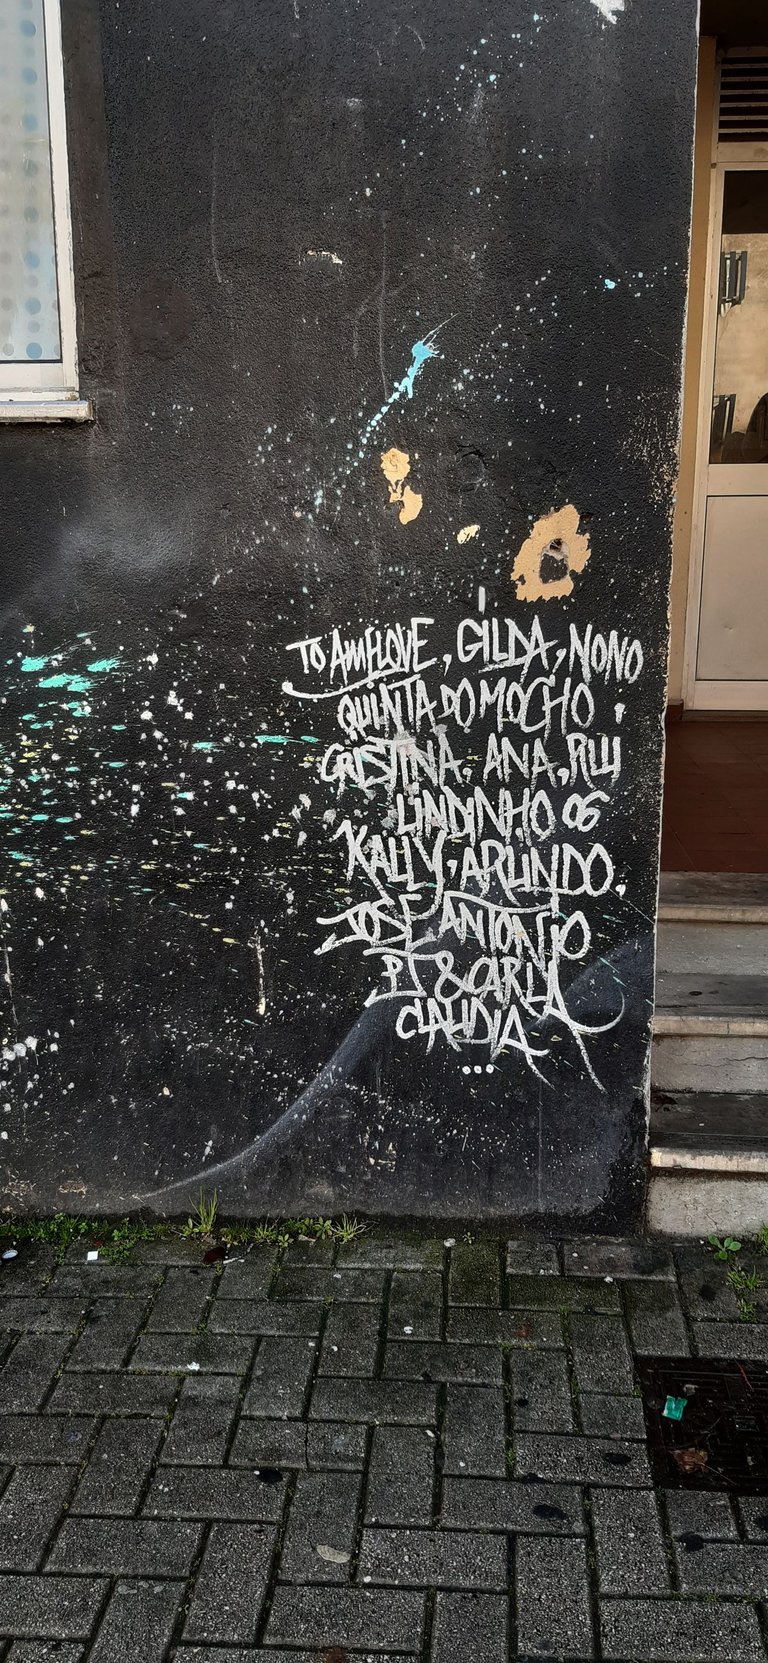 TO AMELOVE, GILDA, NONO
QUINTA DO MOCHO
CRISTINA, ANA, RUI
LINDINHO 06
KALLY, ARLINDO,
JOSÉ ANTONIO
PJ & CARLA
CLAUDIA
...